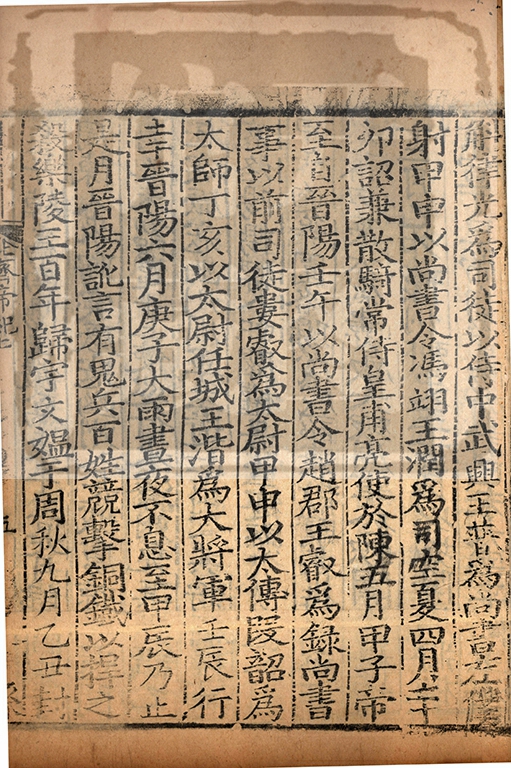 斛律光為司徒以侍中武興王普為尚書左僕
射甲申以尚書令馮翊王潤為司空夏四月辛
卯詔兼散騎常侍皇甫亮使於陳五月甲子帝
至自晉陽壬午以尚書令趙郡王叡為錄尚書
事以前司徒婁叡為太尉甲申以太傅段韶為
太師丁亥以太尉任城王湝為大將軍壬辰行
幸晉陽六月庚子大雨晝夜不息至甲辰乃止
是月晉陽訛言有鬼兵百姓競擊銅鐵以捍之
殺樂陵王百年歸宇文媼于周秋九月乙丑封
五